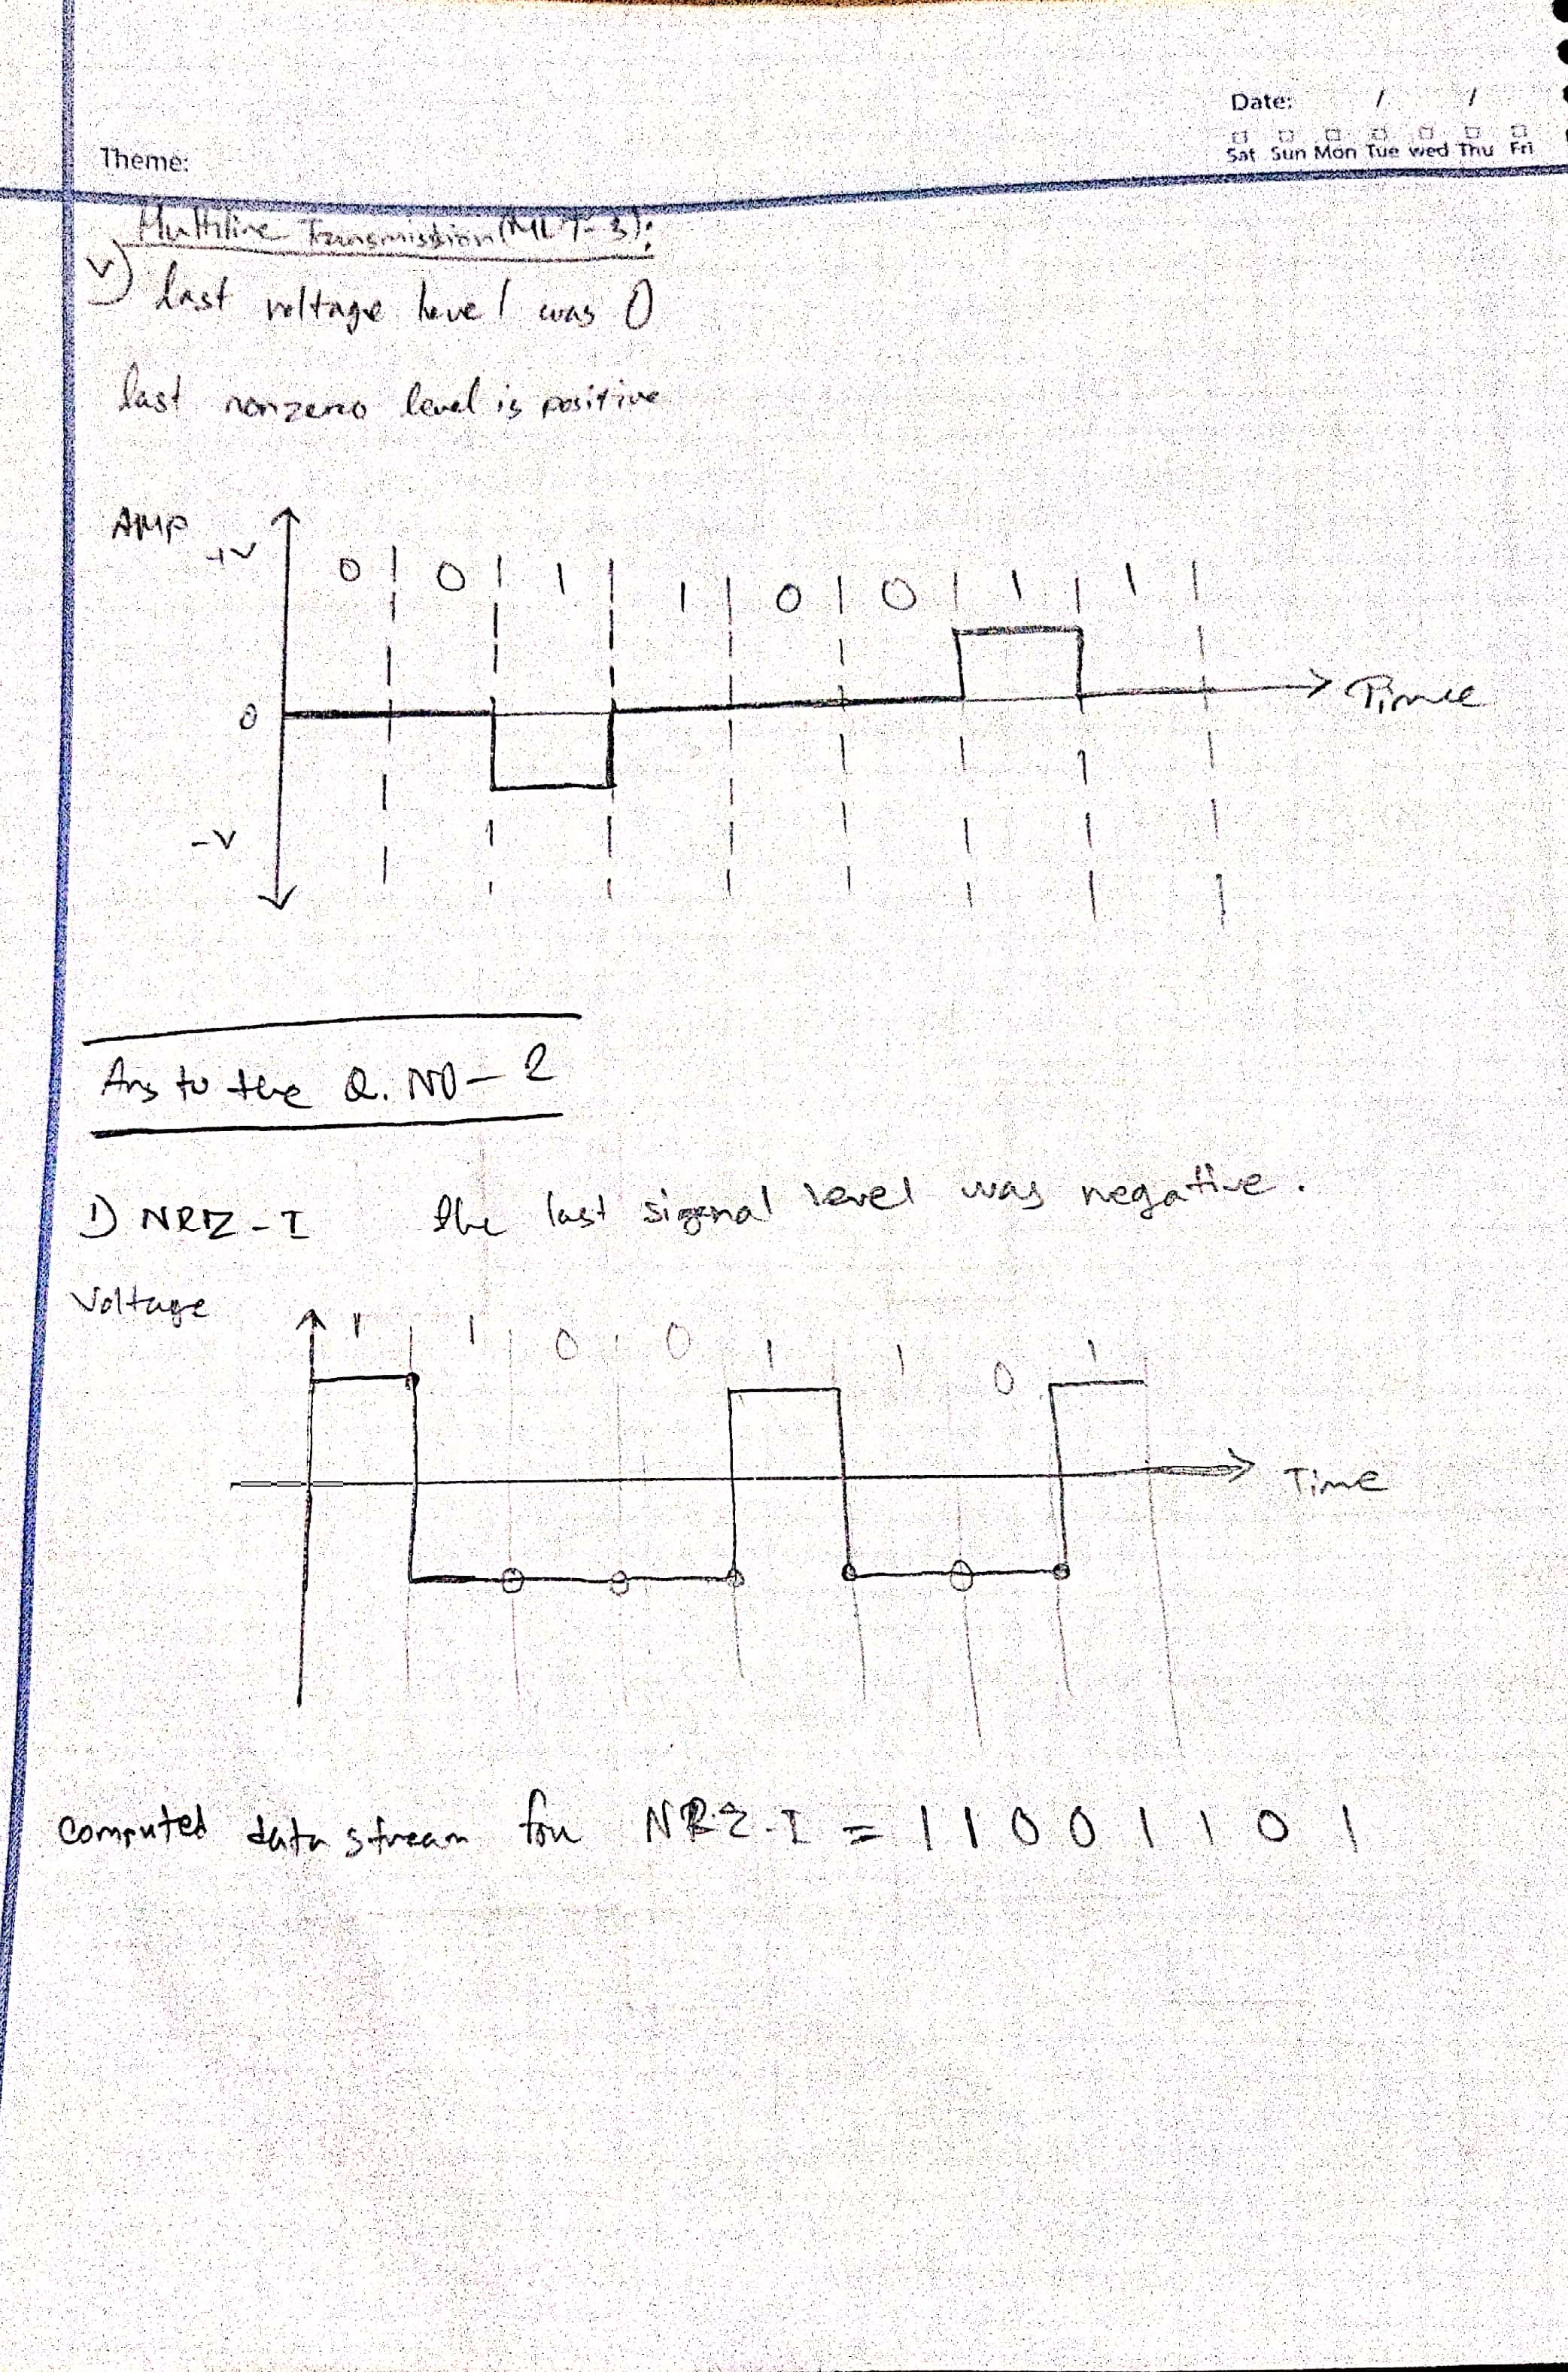 Date: / /
Sat Sun Mon Tue wed Thu Fri
Theme:
Multiline Transmission (MLT-3):
v) last voltage level was 0
last nonzero level is positive
AMP
+V
0 0 1 1 0 0 1 1
0
Time
-V
Ans to the Q. NO-2
1) NRZ-I the last signal level was negative.
Voltage
1 1 0 0 1 1 0 1
Time
Computed data stream for NRZ-I = 11001101